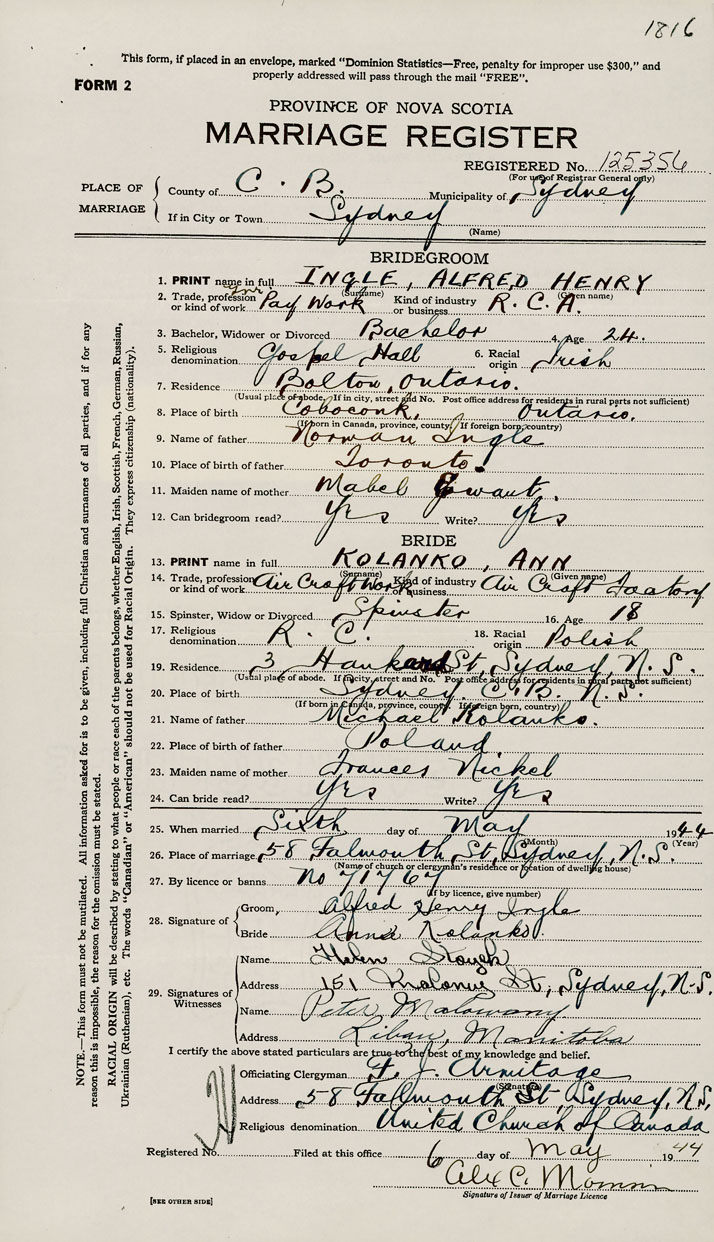 1816
This form, if placed in an envelope, marked "Dominion Statistics—Free, penalty for improper use $300," and
properly addressed will pass through the mail "FREE".
FORM 2
PROVINCE OF NOVA SCOTIA
MARRIAGE REGISTER
REGISTERED No. 125356
(For use of Registrar General only)
PLACE OF MARRIAGE
County of C. B. Municipality of Sydney
If in City or Town Sydney
(Name)
BRIDEGROOM
1. PRINT name in full INGLE, ALFRED HENRY
(Surname) (Given name)
2. Trade, profession or kind of work Pay Work Kind of industry or business R. C. A.
3. Bachelor, Widower or Divorced Bachelor 4. Age 24.
5. Religious denomination Gospel Hall 6. Racial origin Irish
7. Residence Bolton, Ontario.
(Usual place of abode. If in city, street and No. Post office address for residents in rural parts not sufficient)
8. Place of birth Coboconk, Ontario.
(If born in Canada, province, county. If foreign born, country)
9. Name of father Norman Ingle
10. Place of birth of father Toronto.
11. Maiden name of mother Mabel
12. Can bridegroom read? Yes Write? Yes
BRIDE
13. PRINT name in full KOLANKO, ANN
(Surname) (Given name)
14. Trade, profession or kind of work Air Craft Work Kind of industry or business Air Craft Factory
15. Spinster, Widow or Divorced Spinster 16. Age 18
17. Religious denomination R. C. 18. Racial origin Polish
19. Residence 3 St, Sydney, N. S.
(Usual place of abode. If in city, street and No. Post office address for residents in rural parts not sufficient)
20. Place of birth Sydney, C. B. N. S.
(If born in Canada, province, county. If foreign born, country)
21. Name of father Michael Kolanko.
22. Place of birth of father Poland
23. Maiden name of mother Frances Nickel
24. Can bride read? Yes Write? Yes
25. When married Sixth day of May 1944
(Month) (Year)
26. Place of marriage 58 Falmouth St, Sydney, N. S.
(Name of church or clergyman's residence or location of dwelling house)
27. By licence or banns No 71767
(If by licence, give number)
28. Signature of
Groom, Alfred Henry Ingle
Bride Anna Kolanko.
29. Signatures of Witnesses
Name Helen
Address 151 St, Sydney, N.S.
Name Peter
Address Manitoba
I certify the above stated particulars are true to the best of my knowledge and belief.
Officiating Clergyman F. J. Armitage
(Signature)
Address 58 Falmouth St, Sydney, N.S.
Religious denomination United Church of Canada
Registered No. Filed at this office 6 day of May 1944
Alex C.
Signature of Issuer of Marriage Licence
[SEE OTHER SIDE]
NOTE.—This form must not be mutilated. All information asked for is to be given, including full Christian and surnames of all parties, and if for any
reason this is impossible, the reason for the omission must be stated.
RACIAL ORIGIN will be described by stating to what people or race each of the parents belongs, whether English, Irish, Scottish, French, German, Russian,
Ukrainian (Ruthenian), etc. The words "Canadian" or "American" should not be used for Racial Origin. They express citizenship (nationality).